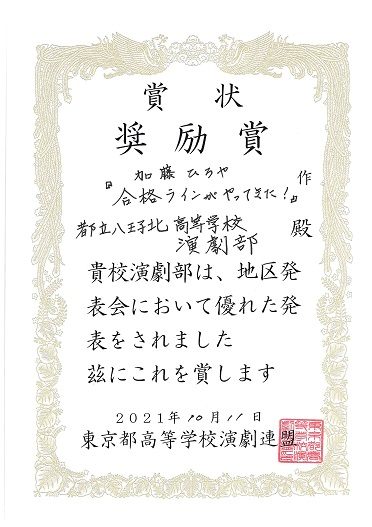 賞状
奨励賞
加藤ひろや 作
『合格ラインがやってきた！』
都立八王子北高等学校
演劇部 殿
貴校演劇部は、地区発
表会において優れた発
表をされました
玆にこれを賞します
2021年10月11日
東京都高等学校演劇連盟